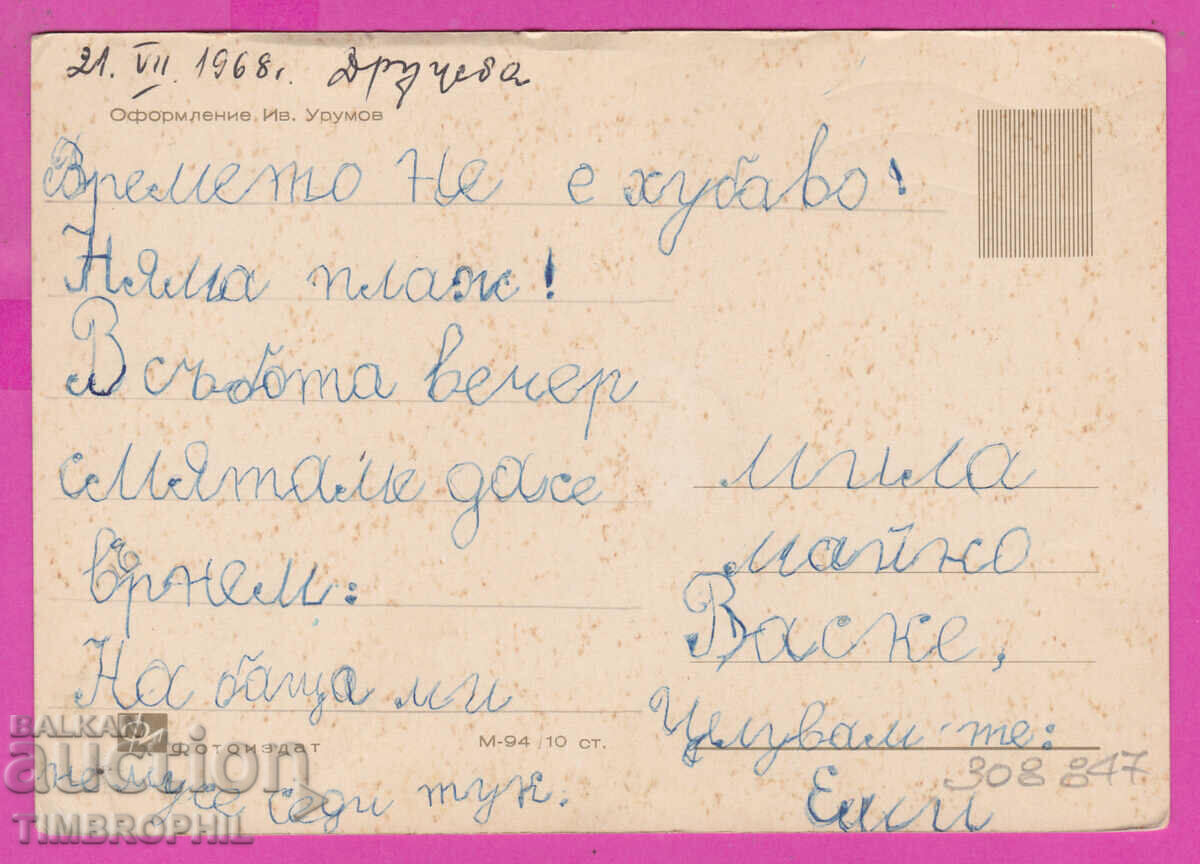 21. VII. 1968г. Дружба
Оформление Ив. Урумов
Времето не е хубаво!
Няма плаж!
В събота вечер
смятаме да се
върнем:
На баща ми
не му се седи тук.
мила
майко
Васке,
Целувам те:
Еми
Фотоиздат
М-94 / 10 ст.
308 847
BALKAN
auction
TIMBROPHIL